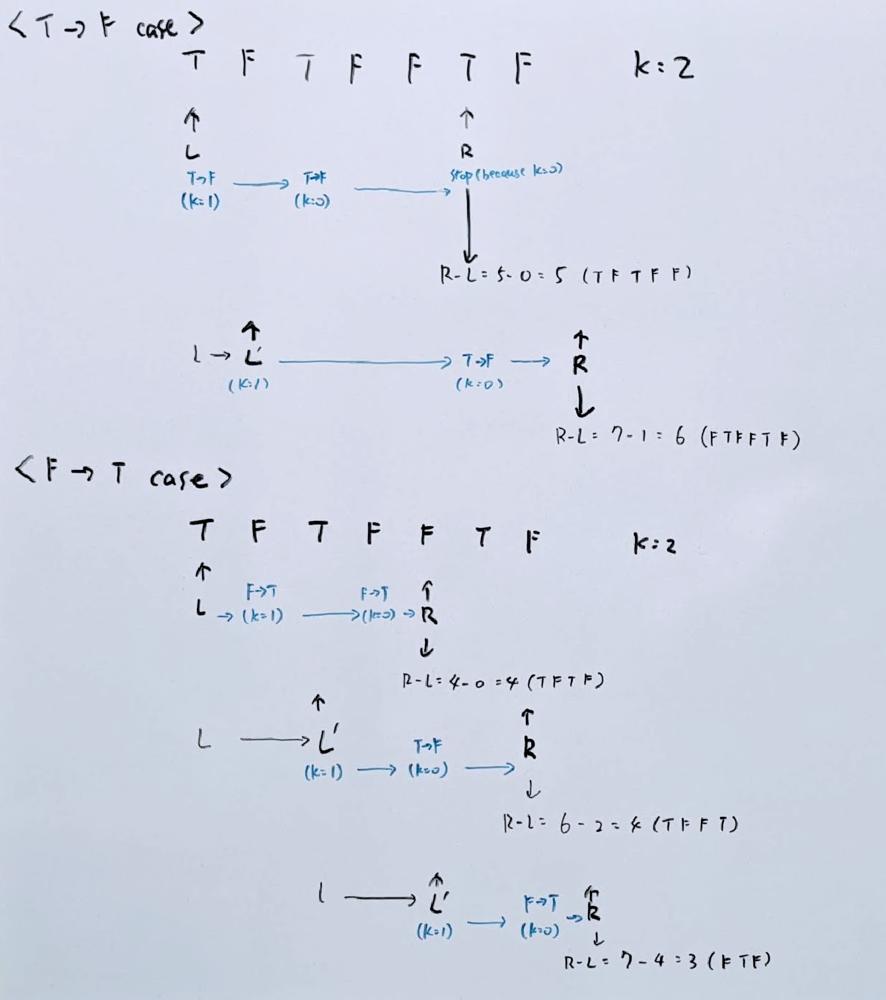 <T→F case>
T F T F F T F k:2
↑ ↑
L R
T→F → T→F → stop (because k=0)
(k=1) (k=0)
R-L=5-0=5 (T F T F F)
↑ ↑
L → L' → T→F → R
(k=1) (k=0)
R-L= 7-1=6 (F T F F T F)
<F→T case>
T F T F F T F k:2
↑ F→T F→T ↑
L → (k=1) → (k=0) → R
R-L=4-0=4 (T F T F)
↑ ↑
L → L' T→F R
(k=1) → (k=0) →
R-L= 6-2=4 (T F F T)
↑ ↑
L → L' F→T R
(k=1) → (k=0) →
R-L= 7-4=3 (F T F)